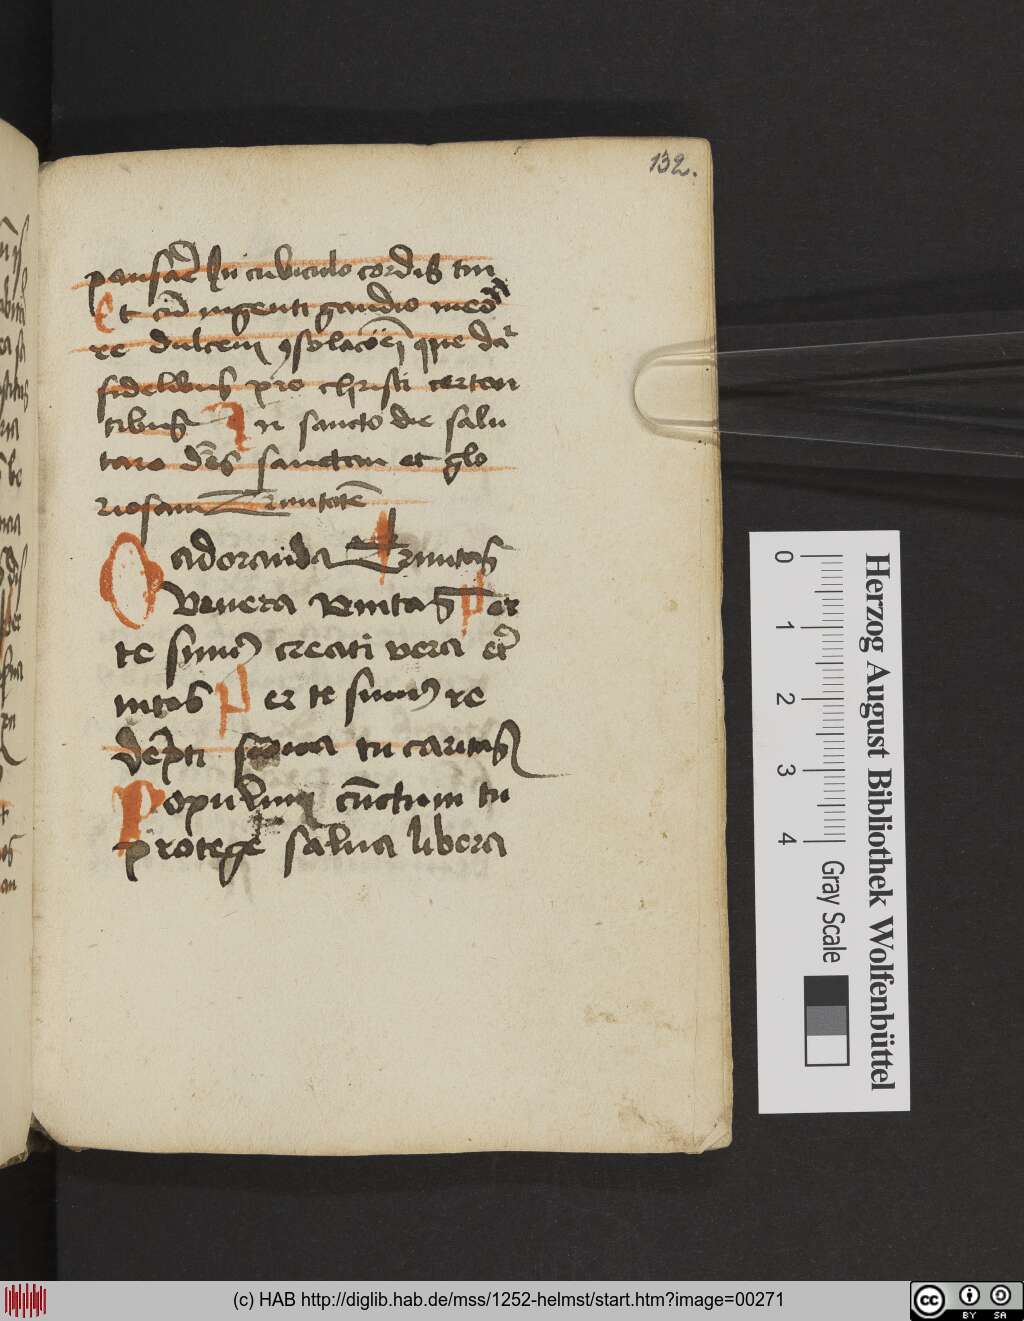 132.
pausare In cubiculo cordis tui
Et cū ingenti gaudio
re dulcem ꝯsolacōem
fidelibus pro christi certan
tribus In sancto die salu
tare sanctam et glo
riosam Trinitatē
O adoranda Trinitas
O veneranda vnitas Per
te sumꝰ creati vera et̄
nitas Per te sumꝰ re
dēpti suma tu caritas
Populum cūctum tu
protege salua libera
Herzog August Bibliothek Wolfenbüttel
0 1 2 3 4
Gray Scale
(c) HAB http://diglib.hab.de/mss/1252-helmst/start.htm?image=00271
cc BY SA